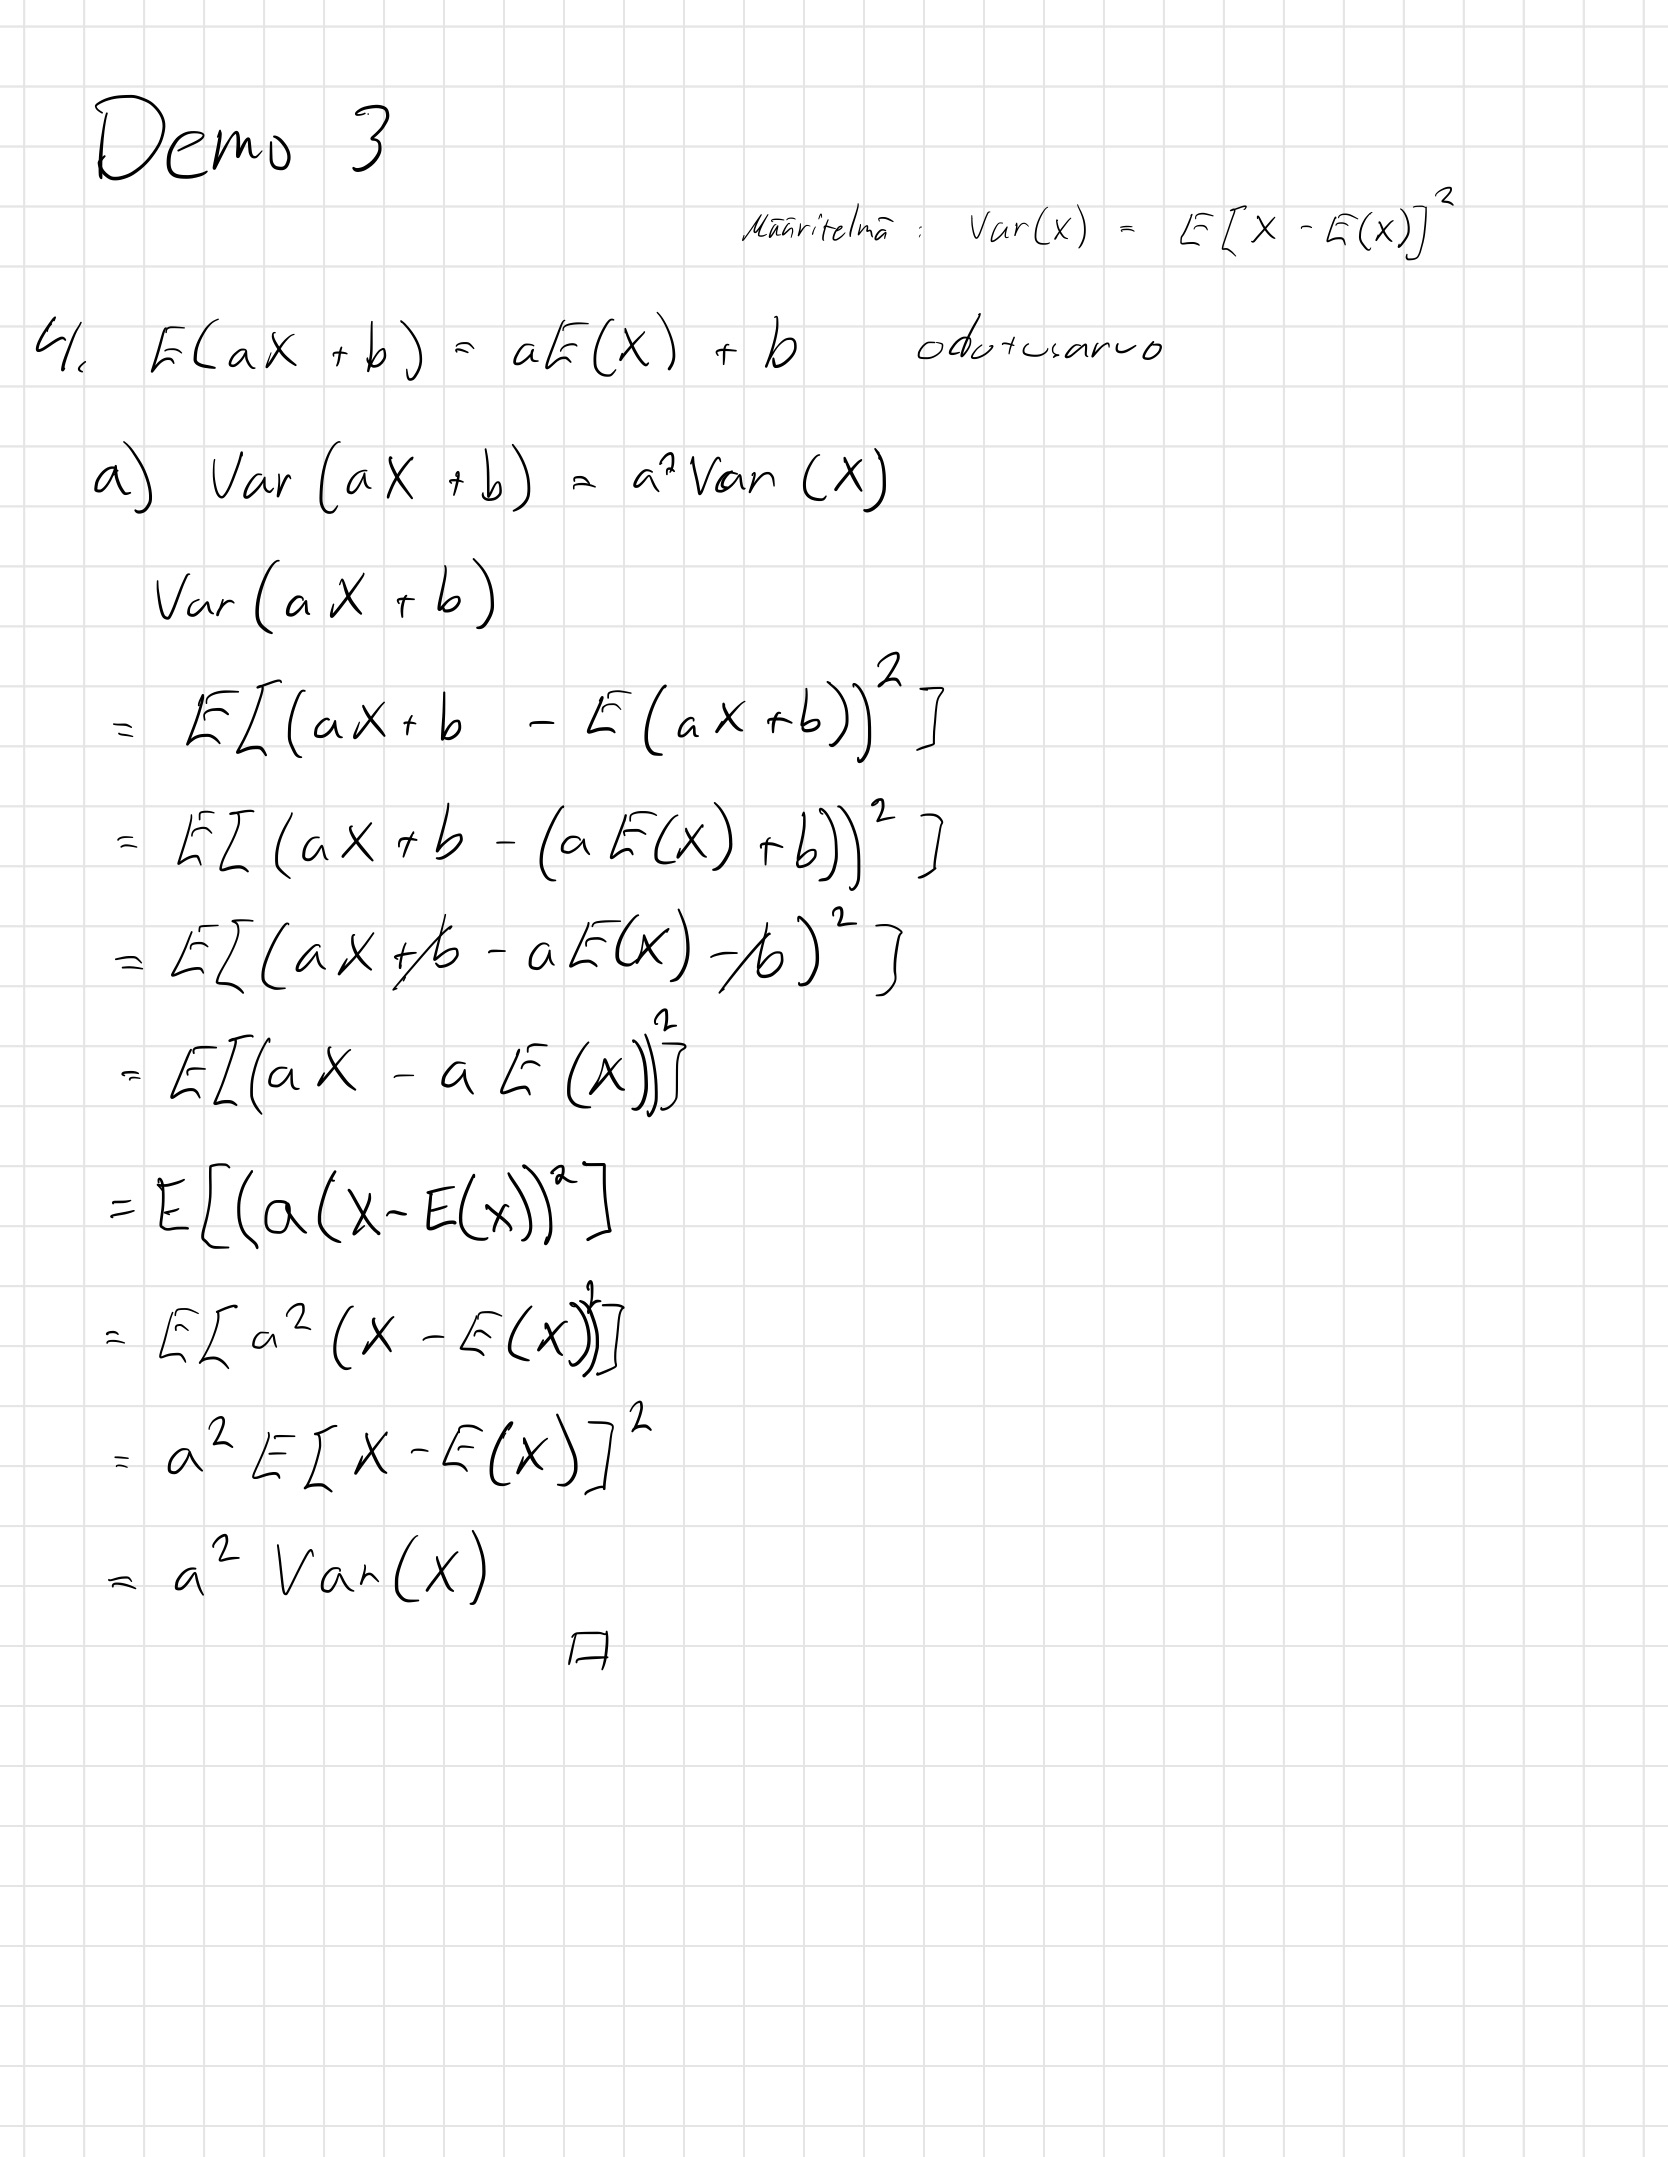 Demo 3
Määritelmä : Var(X) = E[X - E(X)]²
4. E(aX + b) = aE(X) + b odotusarvo
a) Var(aX + b) = a²Var(X)
Var(aX + b)
= E[(aX + b - E(aX + b))²]
= E[(aX + b - (aE(X) + b))²]
= E[(aX + b - aE(X) - b)²]
= E[(aX - aE(X))²]
= E[(a(X - E(X))²]
= E[a²(X - E(X))²]
= a² E[X - E(X)]²
= a² Var(X)
□